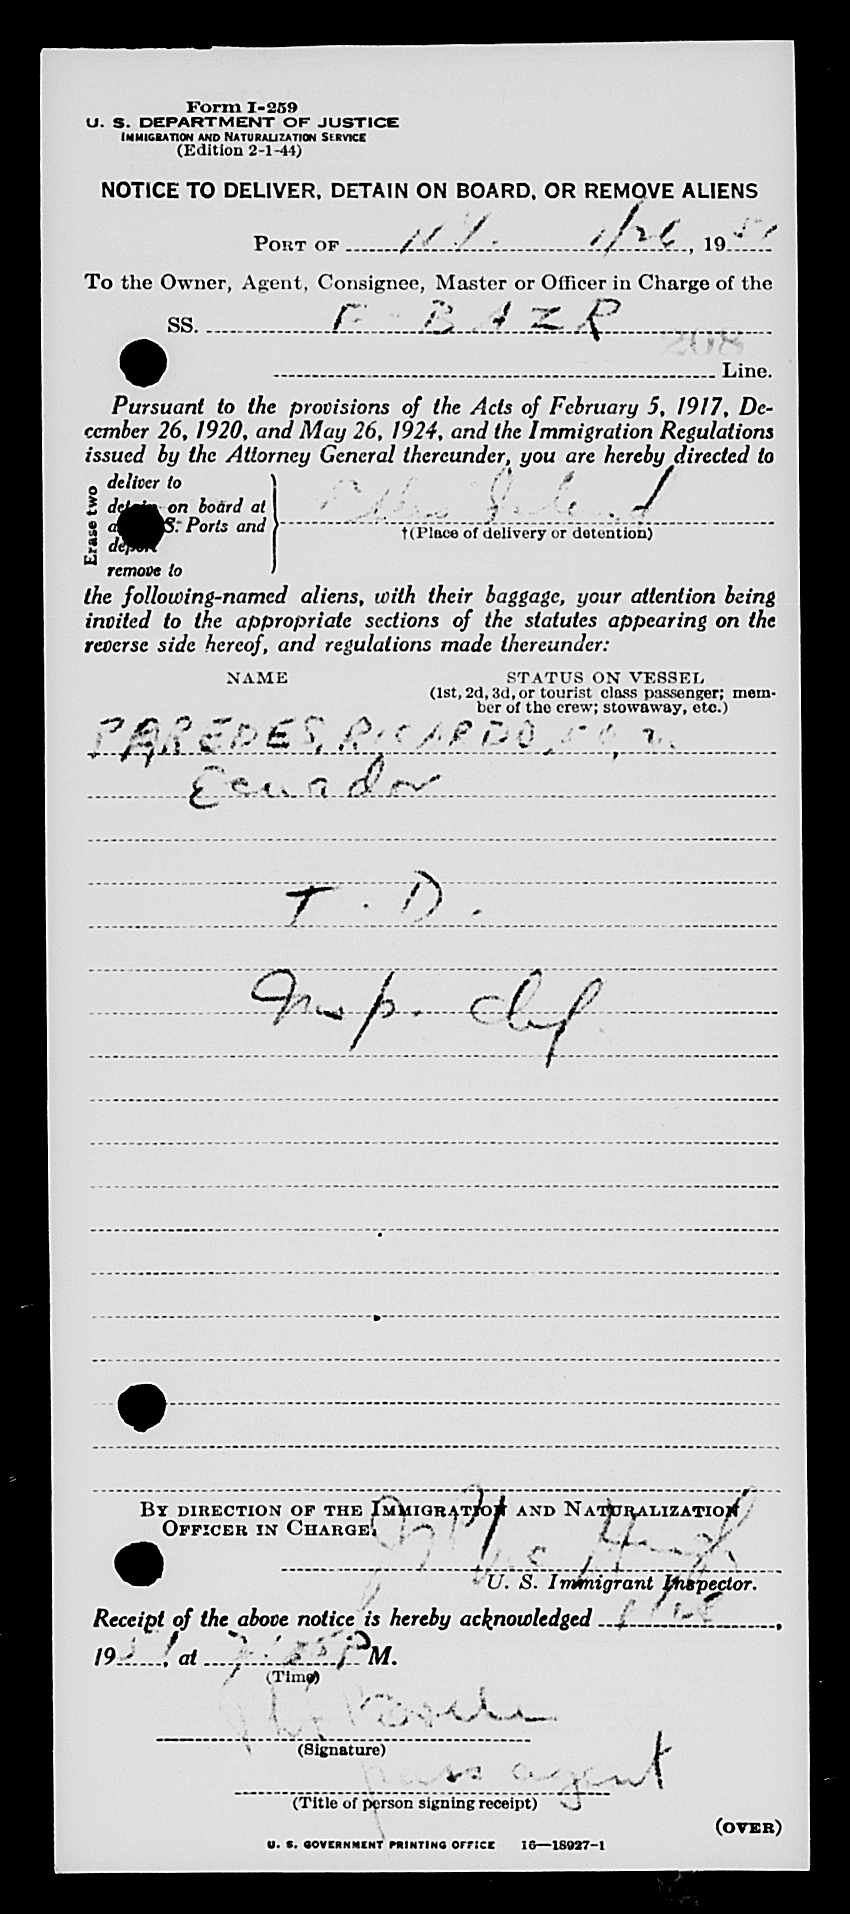 Form I-259
U. S. DEPARTMENT OF JUSTICE
IMMIGRATION AND NATURALIZATION SERVICE
(Edition 2-1-44)
NOTICE TO DELIVER, DETAIN ON BOARD, OR REMOVE ALIENS
PORT OF N.Y. 1/26, 1951
To the Owner, Agent, Consignee, Master or Officer in Charge of the
SS. F-BAZR
208
Line.
Pursuant to the provisions of the Acts of February 5, 1917, De-
cember 26, 1920, and May 26, 1924, and the Immigration Regulations
issued by the Attorney General thereunder, you are hereby directed to
Erase two
deliver to
detain on board at
S. Ports and
deport
remove to
Ellis Island
†(Place of delivery or detention)
the following-named aliens, with their baggage, your attention being
invited to the appropriate sections of the statutes appearing on the
reverse side hereof, and regulations made thereunder:
NAME STATUS ON VESSEL
(1st, 2d, 3d, or tourist class passenger; mem-
ber of the crew; stowaway, etc.)
PAREDES, RICARDO, m.
Ecuador
T. D.
Insp.
BY DIRECTION OF THE IMMIGRATION AND NATURALIZATION
OFFICER IN CHARGE.
Mc Hugh
U. S. Immigrant Inspector.
Receipt of the above notice is hereby acknowledged 1/26,
1951, at P M.
(Time)
(Signature)
pass agent
(Title of person signing receipt)
(OVER)
U. S. GOVERNMENT PRINTING OFFICE 16—18927-1